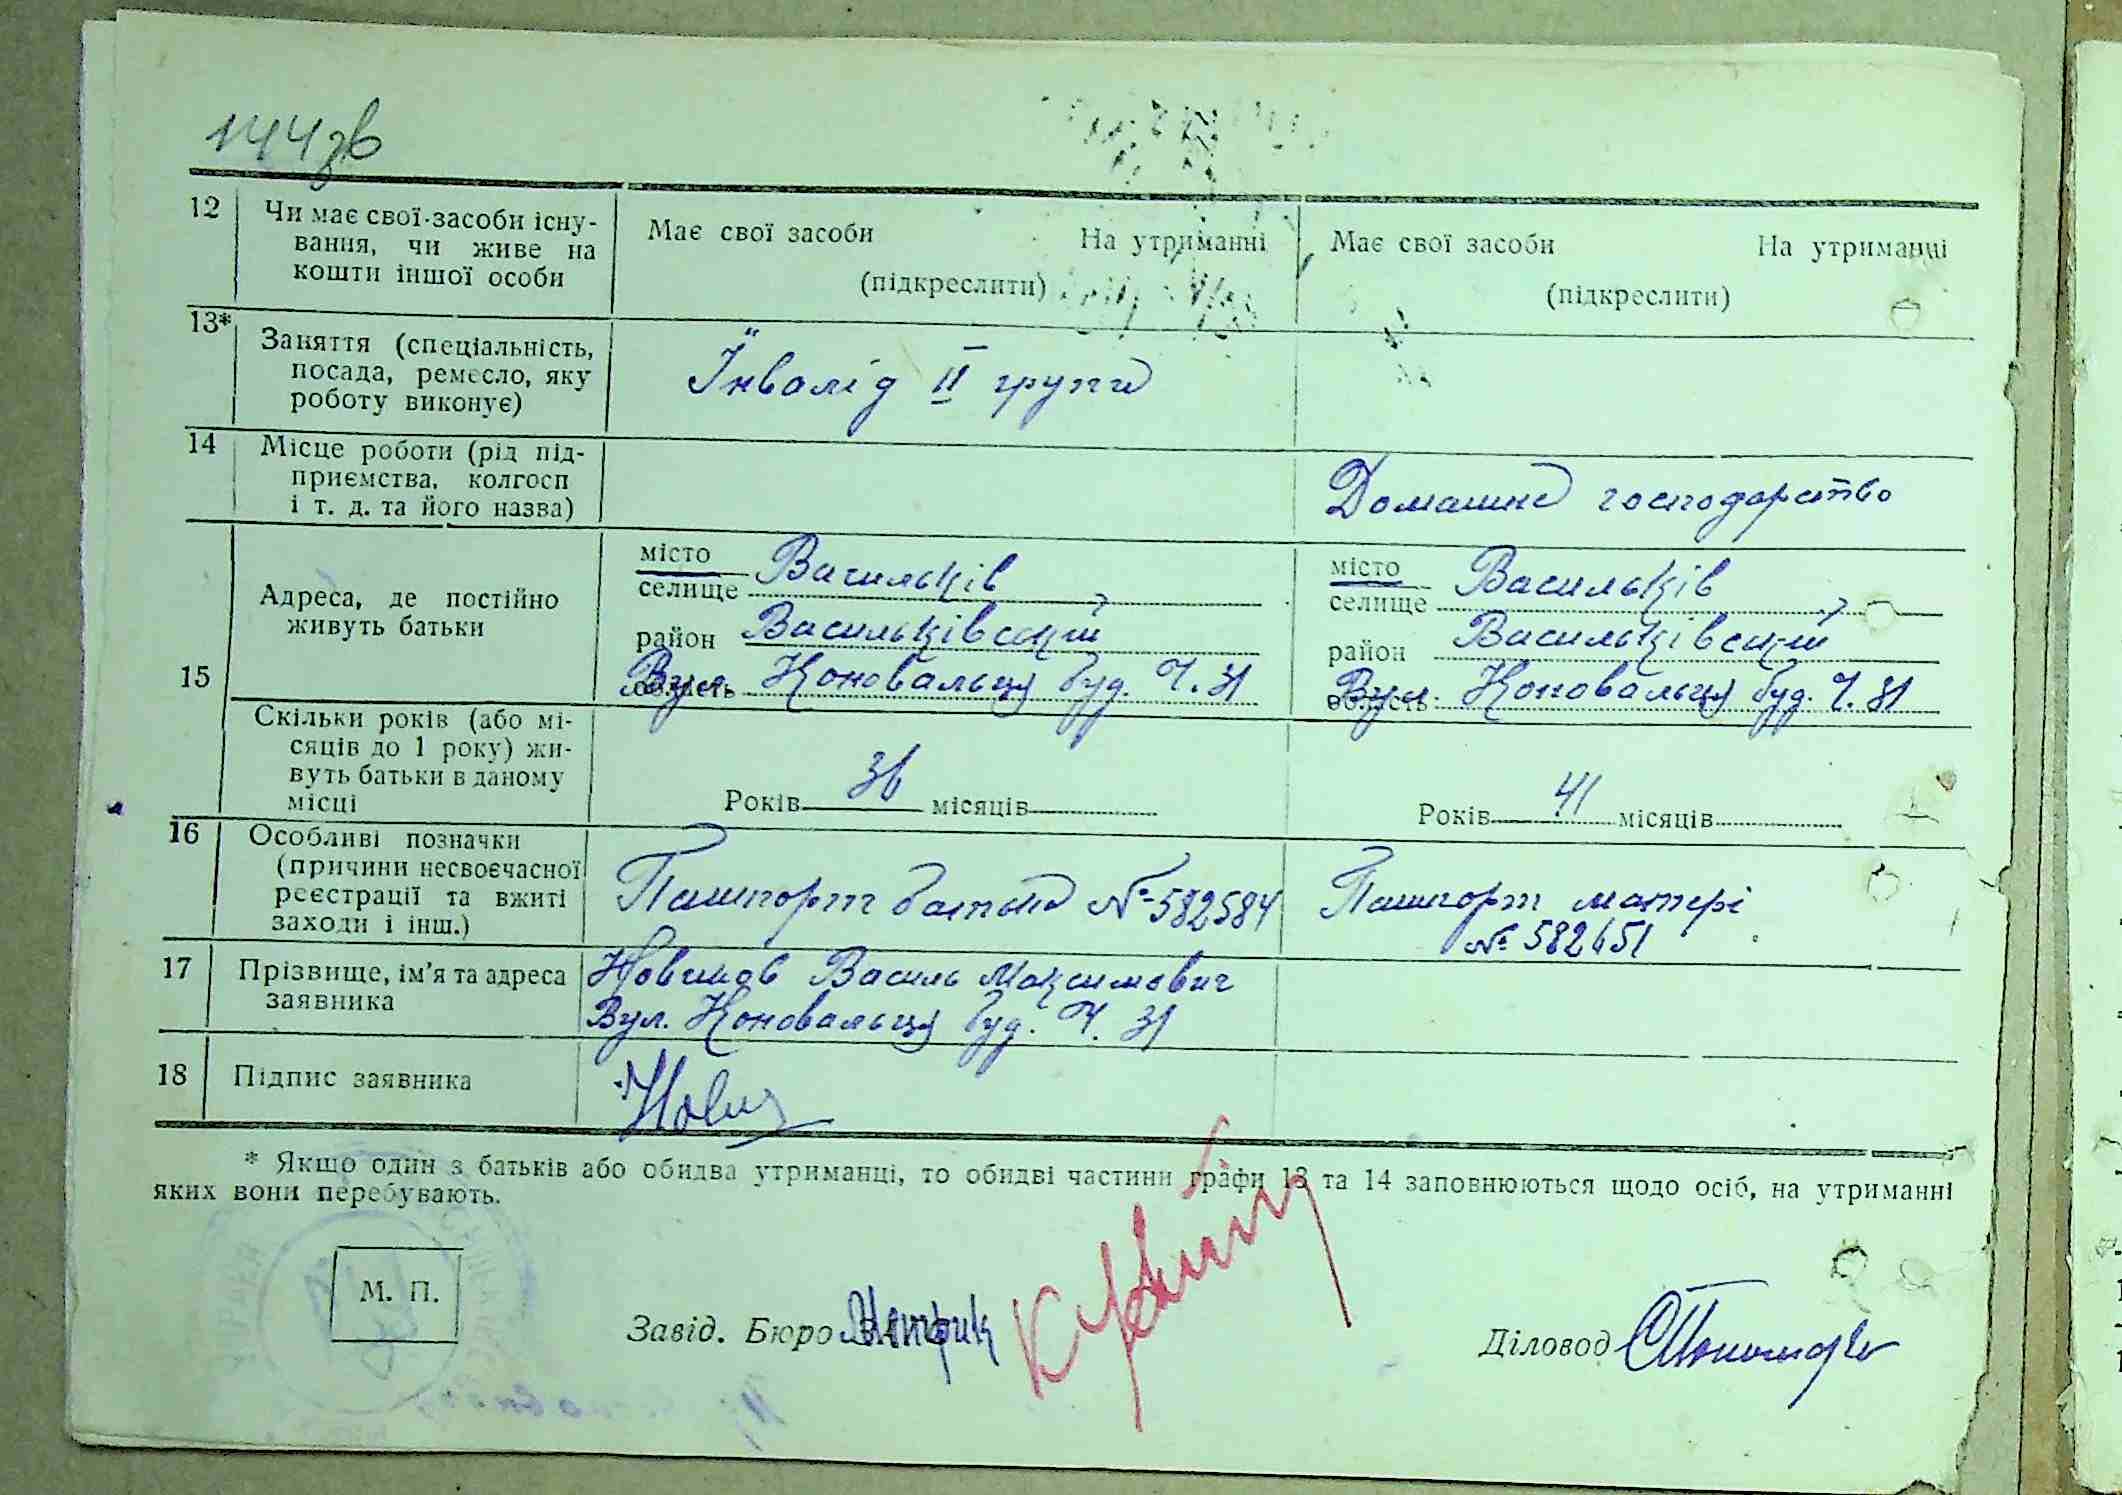 144зв
12 Чи має свої засоби існу-
вання, чи живе на
кошти іншої особи
Має свої засоби На утриманні
(підкреслити)
Має свої засоби На утриманці
(підкреслити)
13* Заняття (спеціальність,
посада, ремесло, яку
роботу виконує)
Їнвалід II групи
14 Місце роботи (рід під-
приємства, колгосп
і т. д. та його назва)
Домашнє господарство
15 Адреса, де постійно
живуть батьки
місто
селище Васильків
район Васильківський
область Вул. Коновальця буд. Ч. 31
місто
селище Васильків
район Васильківський
область Вул. Коновальця буд. Ч. 31
Скільки років (або мі-
сяців до 1 року) жи-
вуть батьки в даному
місці
Років 36 місяців
Років 41 місяців
16 Особливі позначки
(причини несвоєчасної
реєстрації та вжиті
заходи і інш.)
Пашпорт батька № 582584
Пашпорт матері
№ 582651
17 Прізвище, ім'я та адреса
заявника
Новиков Василь Максимович
Вул. Коновальця буд. Ч. 31
18 Підпис заявника
* Якщо один з батьків або обидва утриманці, то обидві частини графи 13 та 14 заповнюються щодо осіб, на утриманні
яких вони перебувають.
М. П.
Завід. Бюро
Діловод